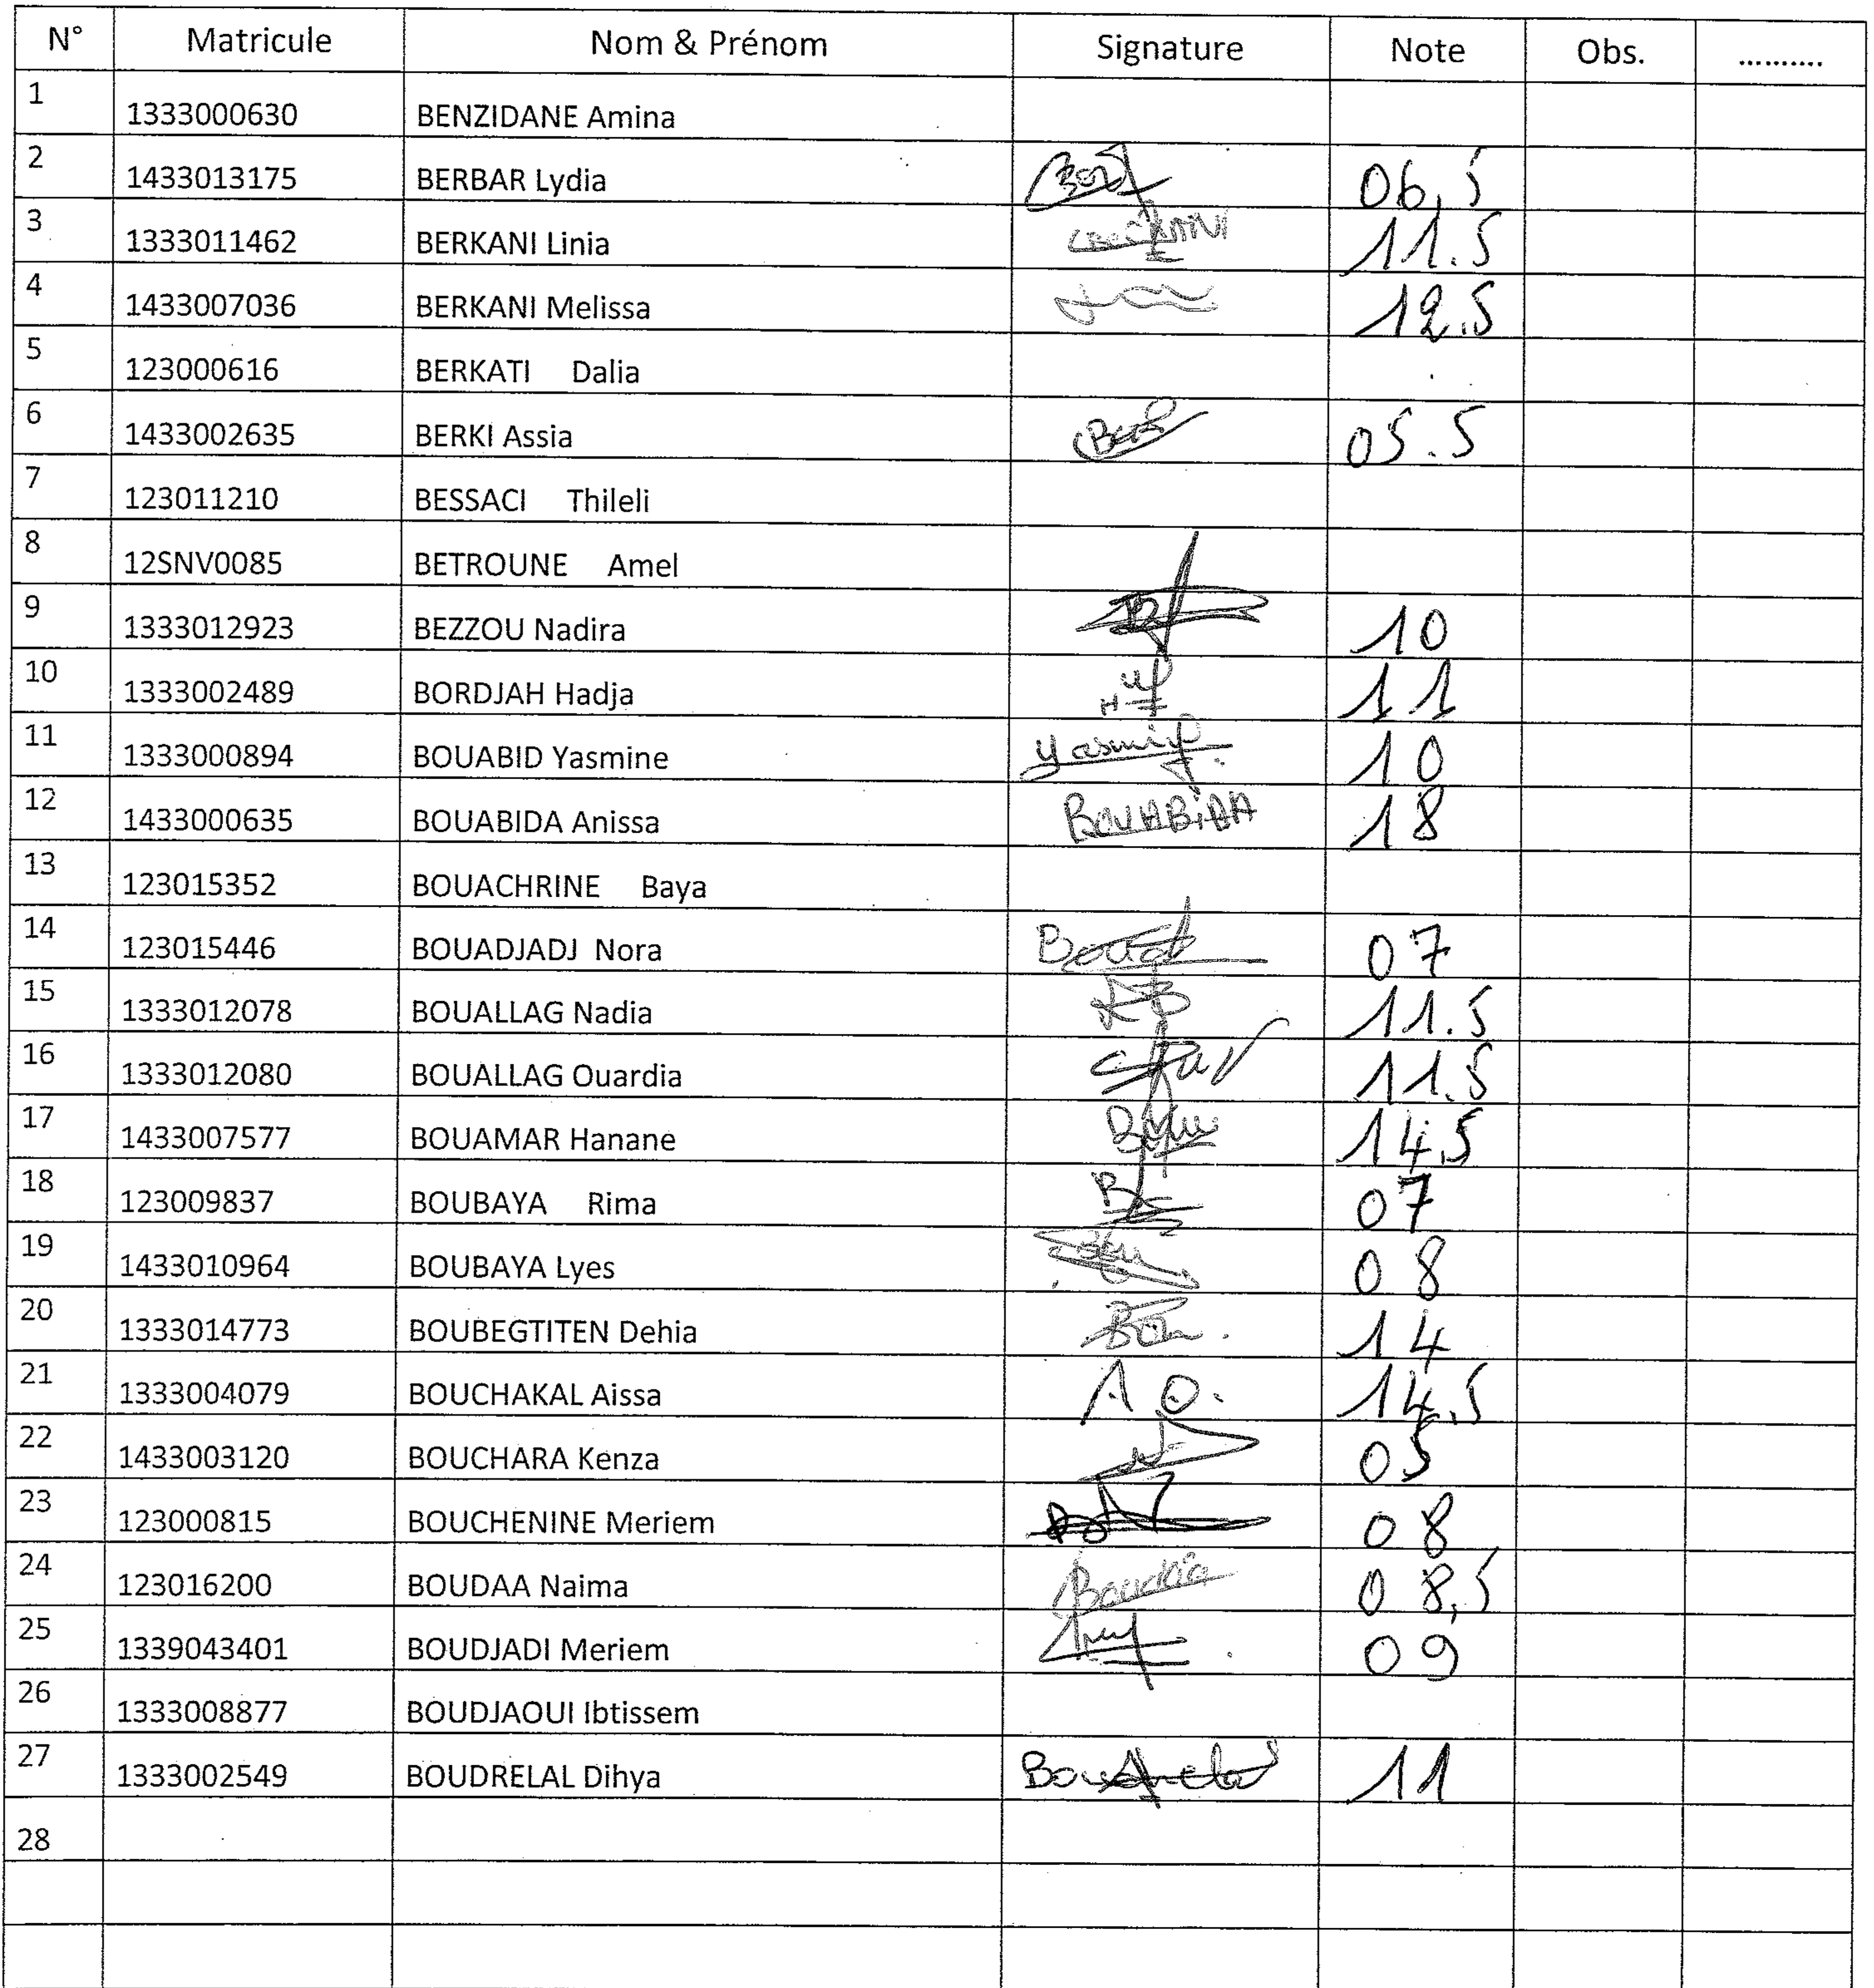 N° Matricule Nom & Prénom Signature Note Obs. ..........
1 1333000630 BENZIDANE Amina
2 1433013175 BERBAR Lydia 06,5
3 1333011462 BERKANI Linia 11.5
4 1433007036 BERKANI Melissa 12.5
5 123000616 BERKATI Dalia
6 1433002635 BERKI Assia 05.5
7 123011210 BESSACI Thileli
8 12SNV0085 BETROUNE Amel
9 1333012923 BEZZOU Nadira 10
10 1333002489 BORDJAH Hadja 11
11 1333000894 BOUABID Yasmine Yasmine 10
12 1433000635 BOUABIDA Anissa BOUABiDA 18
13 123015352 BOUACHRINE Baya
14 123015446 BOUADJADJ Nora 07
15 1333012078 BOUALLAG Nadia 11.5
16 1333012080 BOUALLAG Ouardia 11.5
17 1433007577 BOUAMAR Hanane 14,5
18 123009837 BOUBAYA Rima 07
19 1433010964 BOUBAYA Lyes 08
20 1333014773 BOUBEGTITEN Dehia 14
21 1333004079 BOUCHAKAL Aissa 14,5
22 1433003120 BOUCHARA Kenza 05
23 123000815 BOUCHENINE Meriem 08
24 123016200 BOUDAA Naima 08,5
25 1339043401 BOUDJADI Meriem 09
26 1333008877 BOUDJAOUI Ibtissem
27 1333002549 BOUDRELAL Dihya 11
28